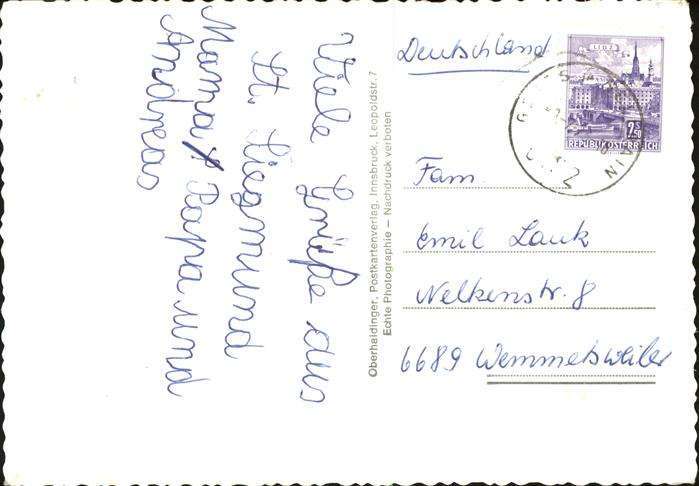 Viele Grüße aus
St. Siegmund
Mama, Papa und
Andreas
Oberhaidinger, Postkartenverlag, Innsbruck, Leopoldstr. 7
Echte Photographie — Nachdruck verboten
Deutschland
LINZ
2.50
S
REPUBLIK ÖSTERREICH
Fam.
Emil Lauk
Nelkenstr. 8
6689 Wemmetsweiler